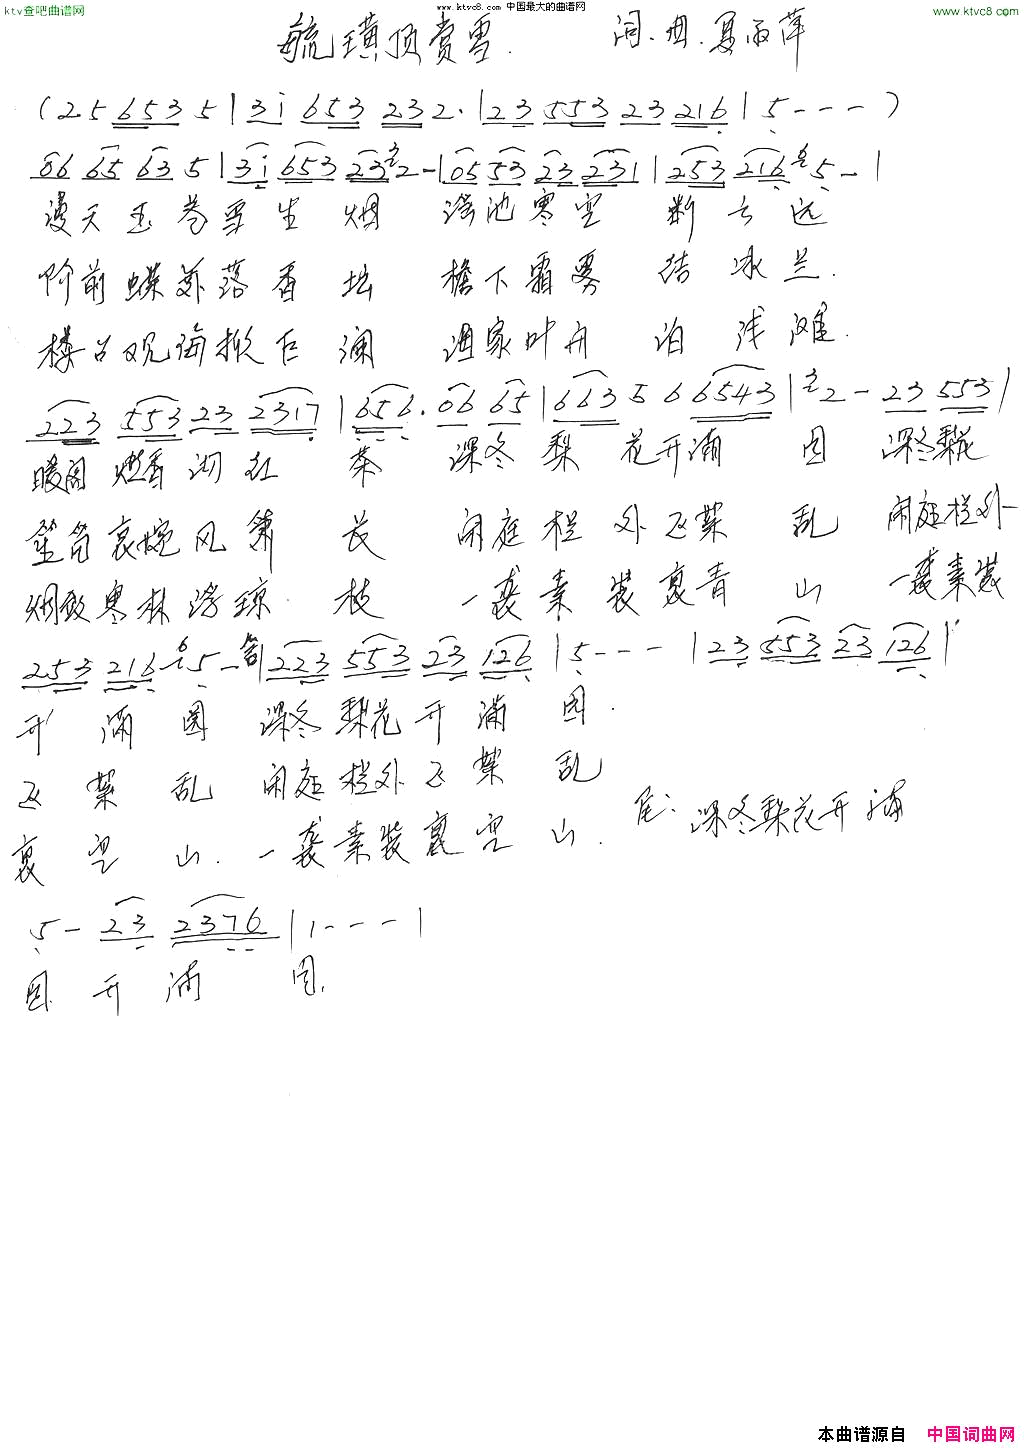 ktv查吧曲谱网
www.ktvc8.com
www.ktvc8.com 中国最大的曲谱网
www.ktvc8.com
毓璜顶赏雪. 词.曲.夏雨萍
(2.5 653 5 | 3i 653 232. | 23 553 23 216 | 5 - - - )
06 65 63 5 | 3i 653 23 2 - | 05 53 23 231 | 253 216 5 - |
漫天玉卷雪生烟 瑶池寒空断云远
阶前蝶舞落香坛 檐下霜雾结冰兰.
楼台观海掀巨澜 渔家叶舟泊浅滩.
223 553 23 2317 | 656. 06 65 | 663 5 6 6543 | 2 - 23 553 |
暖阁 燃香沏红茶 深冬梨花开满园 深冬梨花
笙笛哀婉风箫长 闲庭栏外飞絮乱 闲庭栏外
烟敛寒林浮琼枝 一袭素装裹青山 一袭素装
253 216 5 - | 223 553 23 126 | 5 - - - | 23 553 23 126 |
开满园 深冬梨花开满园.
飞絮乱 闲庭栏外飞絮乱
裹空山. 一袭素装裹空山. 尾: 深冬梨花开满
5 - 23 2376 | 1 - - - |
园. 开满园.
本曲谱源自 中国词曲网